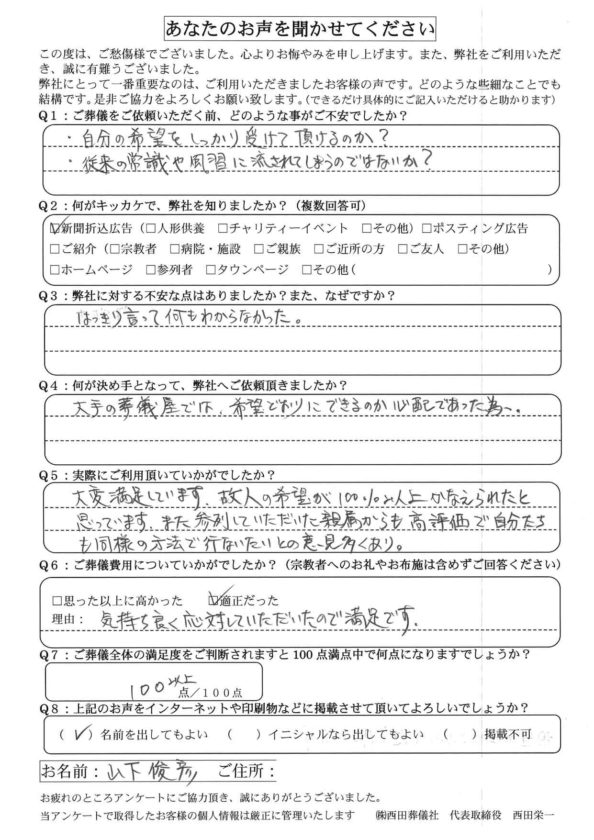 あなたのお声を聞かせてください
この度は、ご愁傷様でございました。心よりお悔やみを申し上げます。また、弊社をご利用いただ
き、誠に有難うございました。
弊社にとって一番重要なのは、ご利用いただきましたお客様の声です。どのような些細なことでも
結構です。是非ご協力をよろしくお願い致します。(できるだけ具体的にご記入いただけると助かります)
Q1:ご葬儀をご依頼いただく前、どのような事がご不安でしたか?
・自分の希望をしっかり受けて頂けるのか?
・従来の常識や風習に流されてしまうのではないか?
Q2:何がキッカケで、弊社を知りましたか?(複数回答可)
☑新聞折込広告(□人形供養 □チャリティーイベント □その他)□ポスティング広告
□ご紹介(□宗教者 □病院・施設 □ご親族 □ご近所の方 □ご友人 □その他)
□ホームページ □参列者 □タウンページ □その他( )
Q3:弊社に対する不安な点はありましたか?また、なぜですか?
はっきり言って何もわからなかった。
Q4:何が決め手となって、弊社へご依頼頂きましたか?
大手の葬儀屋では、希望どおりにできるのか心配であった為、。
Q5:実際にご利用頂いていかがでしたか?
大変満足しています。故人の希望が100%以上かなえられたと
思っています。また参列していただいた親属からも高評価で自分たち
も同様の方法で行ないたいとの意見多くあり。
Q6:ご葬儀費用についていかがでしたか?(宗教者へのお礼やお布施は含めずご回答ください)
□思った以上に高かった ☑適正だった
理由: 気持ち良く応対していただいたので満足です。
Q7:ご葬儀全体の満足度をご判断されますと100点満点中で何点になりますでしょうか?
100以上点/100点
Q8:上記のお声をインターネットや印刷物などに掲載させて頂いてよろしいでしょうか?
(✓)名前を出してもよい ( )イニシャルなら出してもよい ( )掲載不可
お名前:山下俊彦 ご住所:
お疲れのところアンケートにご協力頂き、誠にありがとうございました。
当アンケートで取得したお客様の個人情報は厳正に管理いたします ㈱西田葬儀社 代表取締役 西田栄一